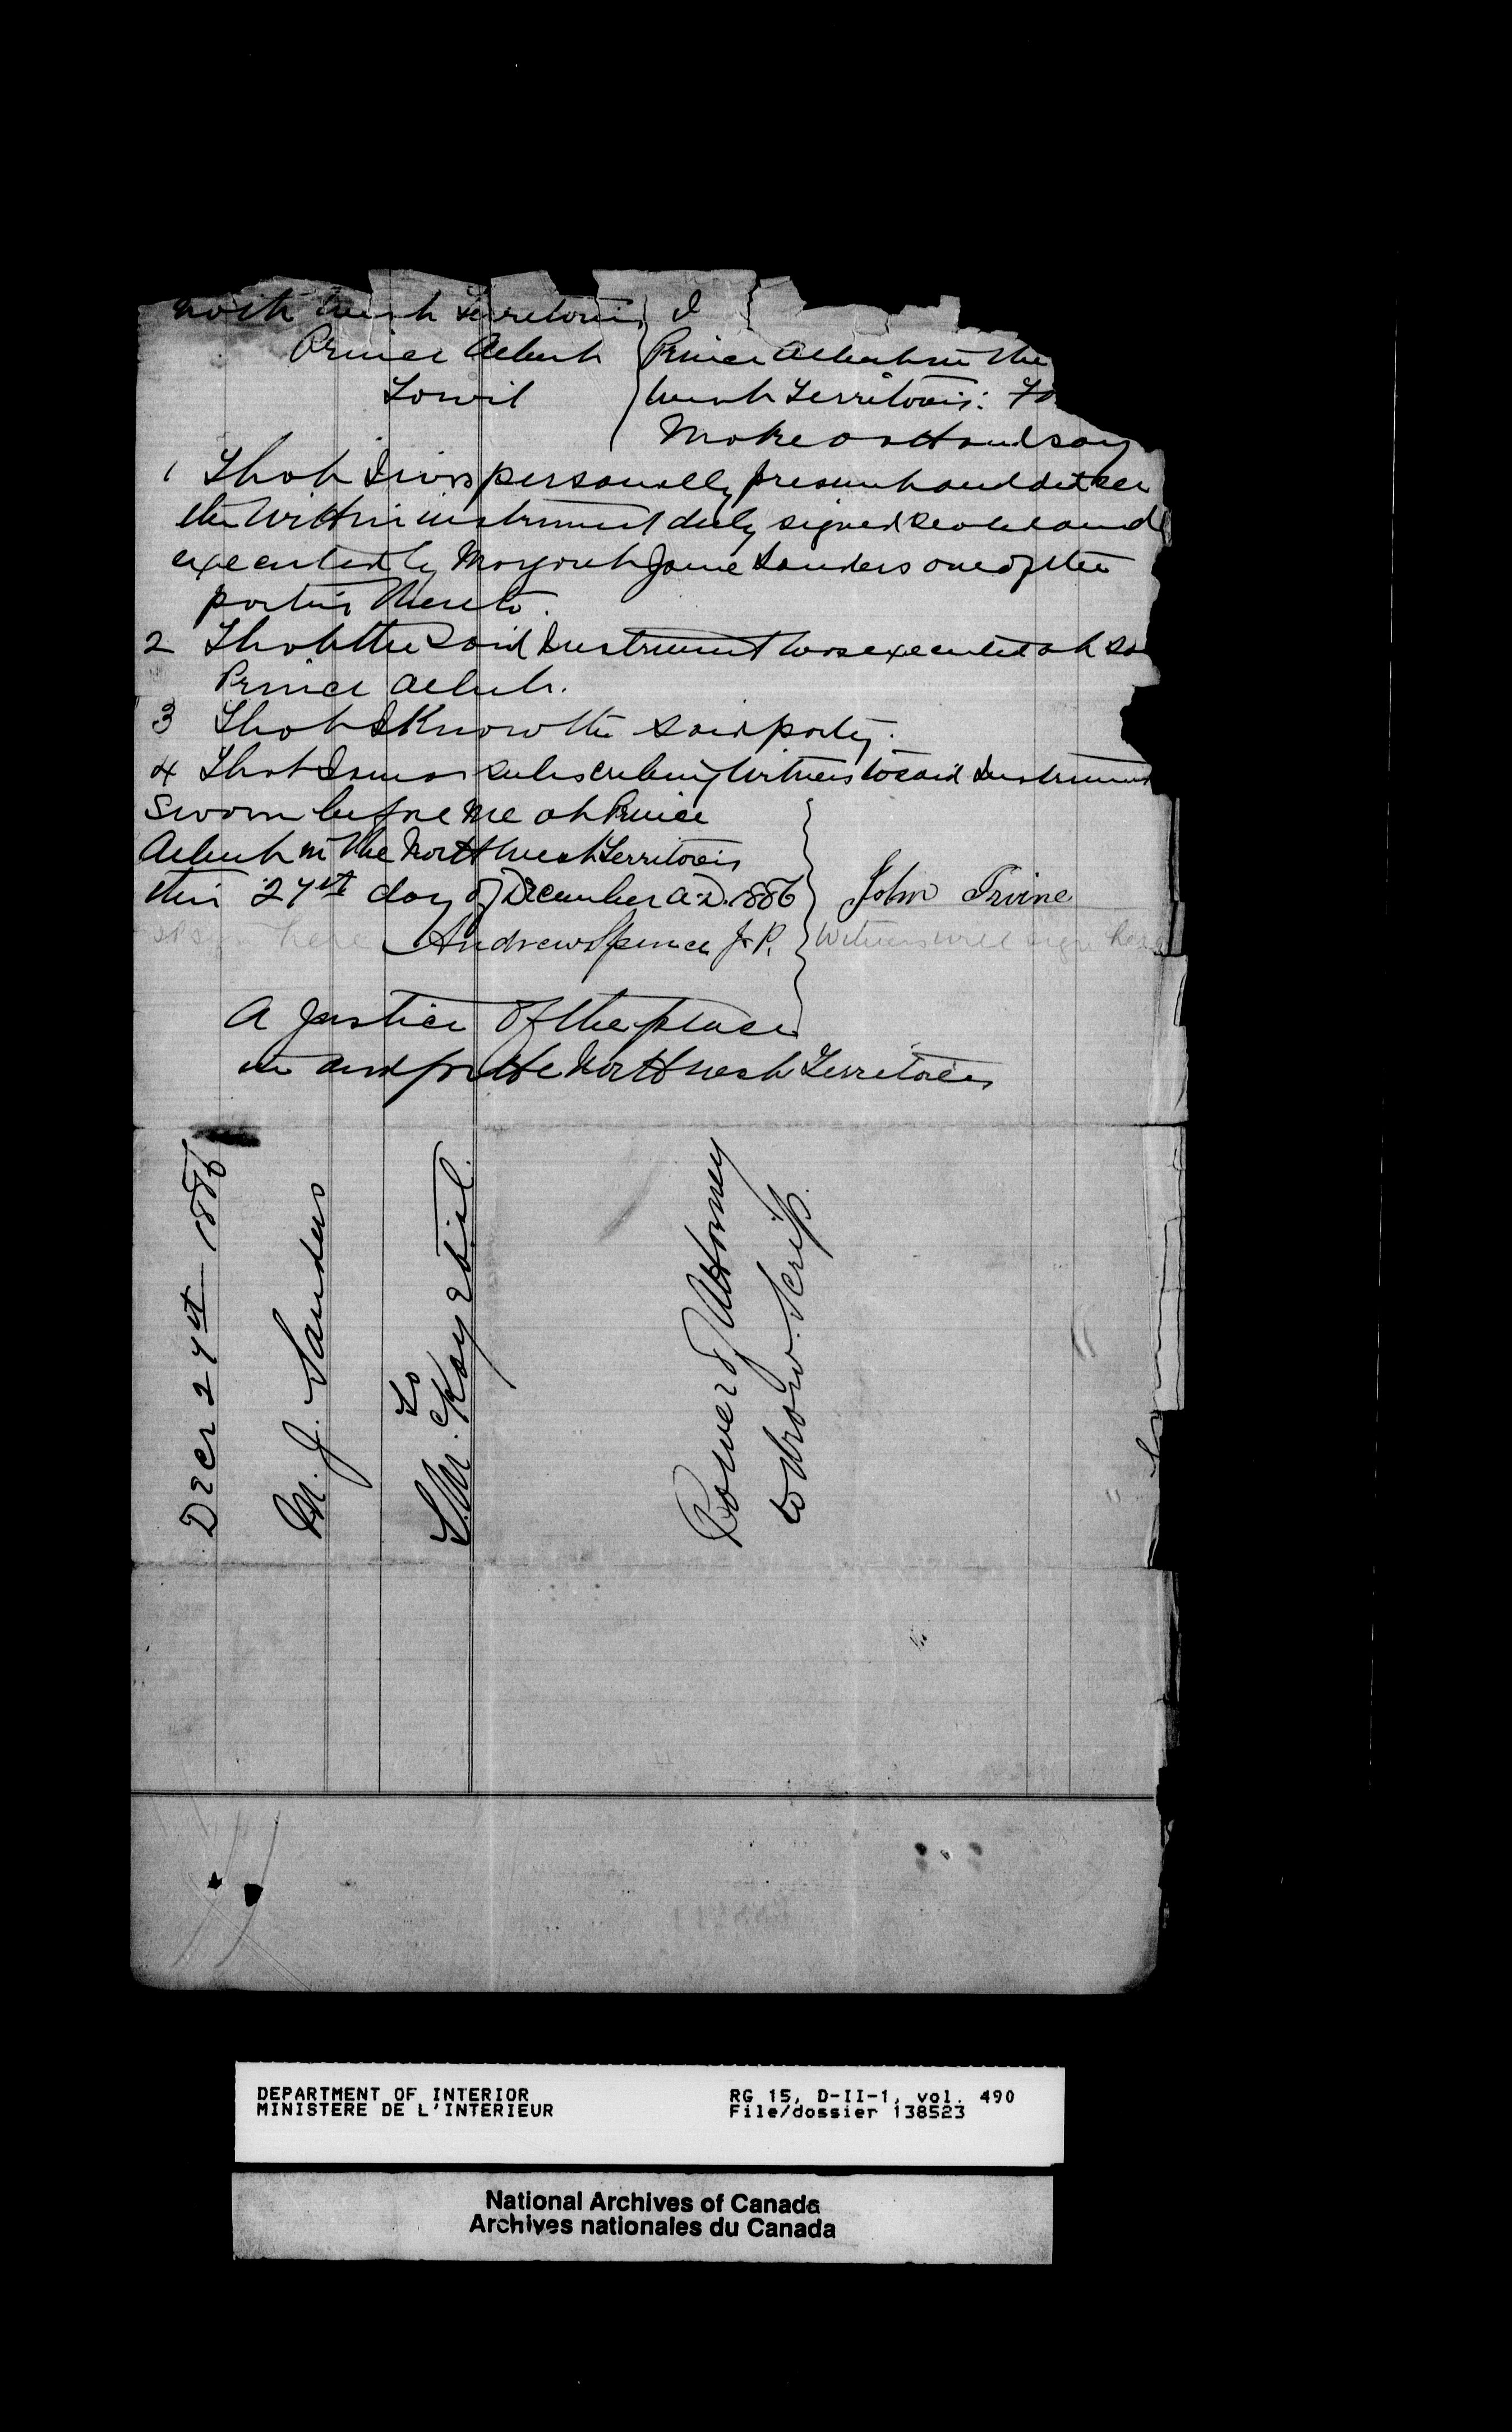 North West Territories I
Prince Albert Prince Albert in the
To wit West Territories:
Make oath and say
1 That I was personally present and did see
the within instrument duly signed sealed and
executed by Margaret Jane Sanders one of the
parties thereto.
2 That the said Instrument was executed at
Prince Albert.
3 That I Know the said party.
4 That I am a subscribing witness to said Instrument
Sworn before me at Prince
Albert in the North West Territories
this 27th day of December A.D. 1886 John Irvine
sign here Andrew Spence J.P. Witness will sign here
A Justice of the peace
in and for the North West Territories
Decr 27th 1886
M. J. Sanders
To
McKay
Power of Attorney
to draw Scrip.
DEPARTMENT OF INTERIOR RG 15, D-II-1, vol. 490
MINISTERE DE L'INTERIEUR File/dossier 138523
National Archives of Canada
Archives nationales du Canada